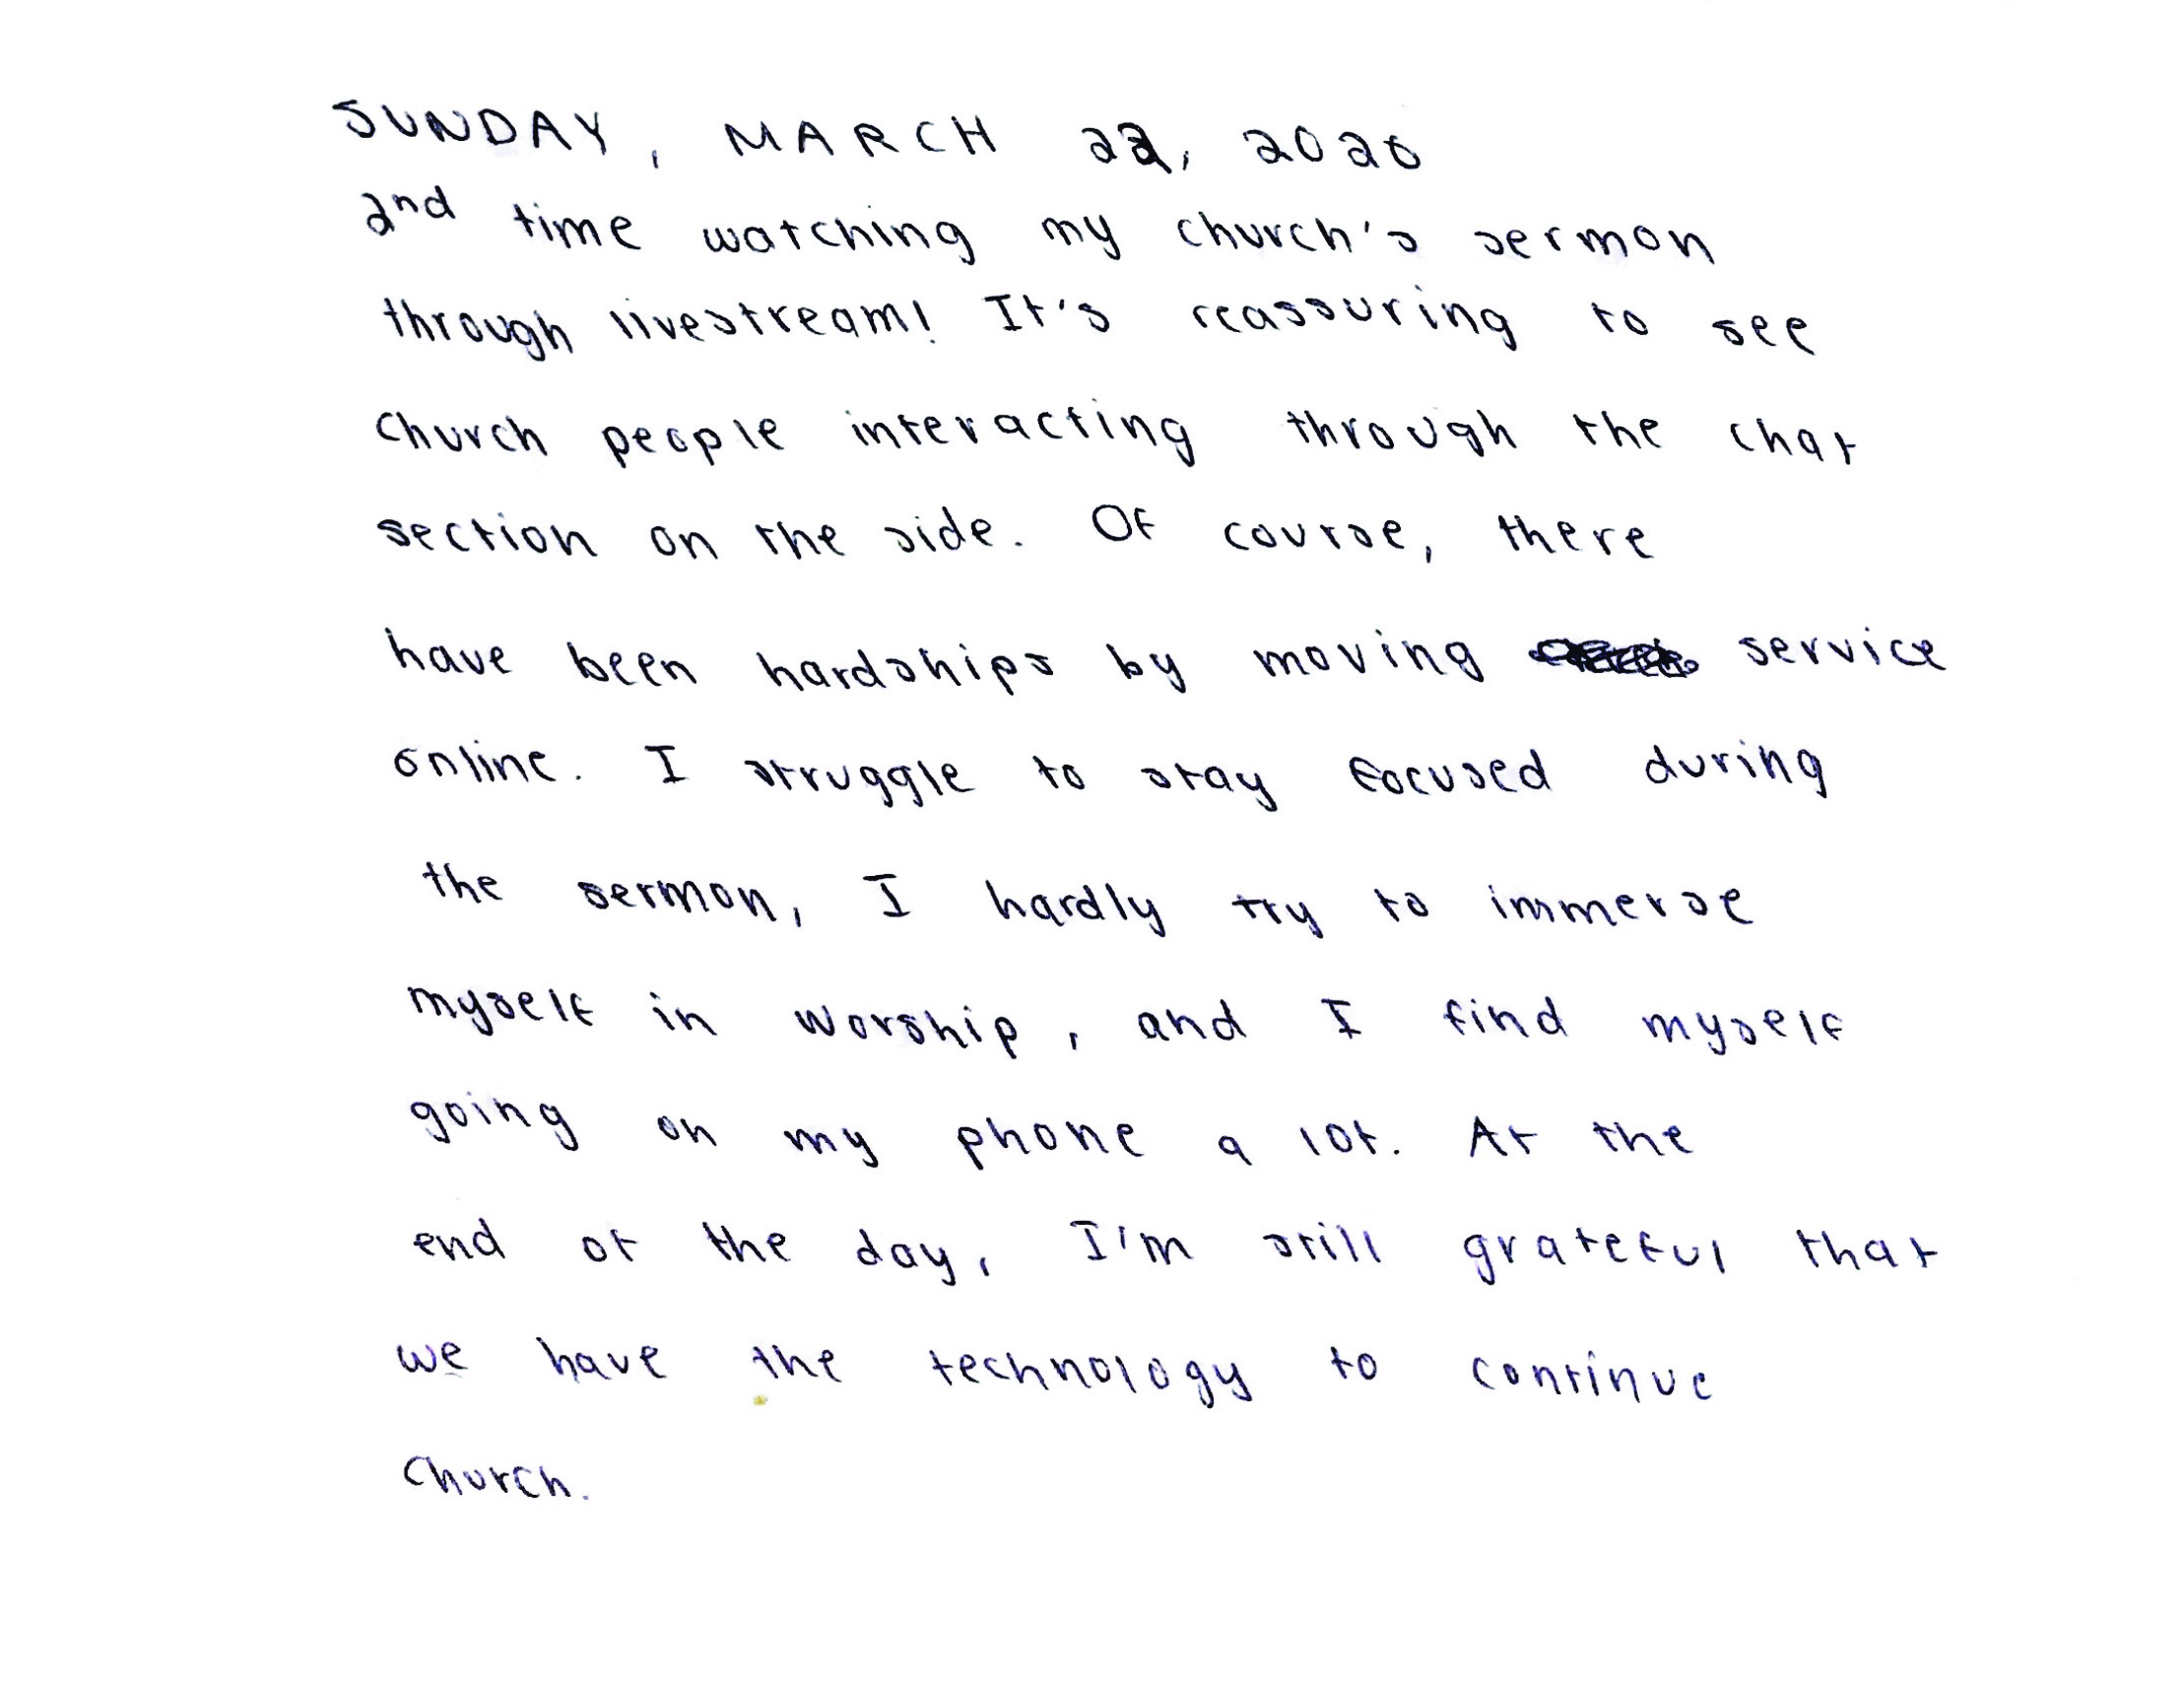 SUNDAY, MARCH 22, 2020
2nd time watching my church's sermon
through livestream! It's reassuring to see
church people interacting through the chat
section on the side. Of course, there
have been hardships by moving service
online. I struggle to stay focused during
the sermon, I hardly try to immerse
myself in worship, and I find myself
going on my phone a lot. At the
end of the day, I'm still grateful that
we have the technology to continue
church.